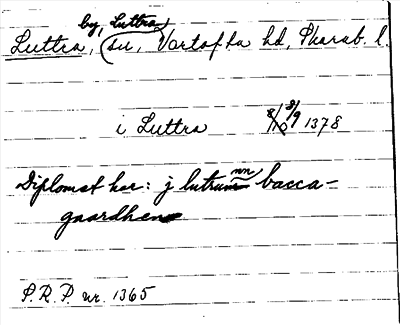 by, Luttra
Luttra, su, Vartofta hd, Skarab. l.
i Luttra 8/9 1378
Diplomet har: j lutrum bacca-
mn
gaardhen
P.R.P. nr. 1365